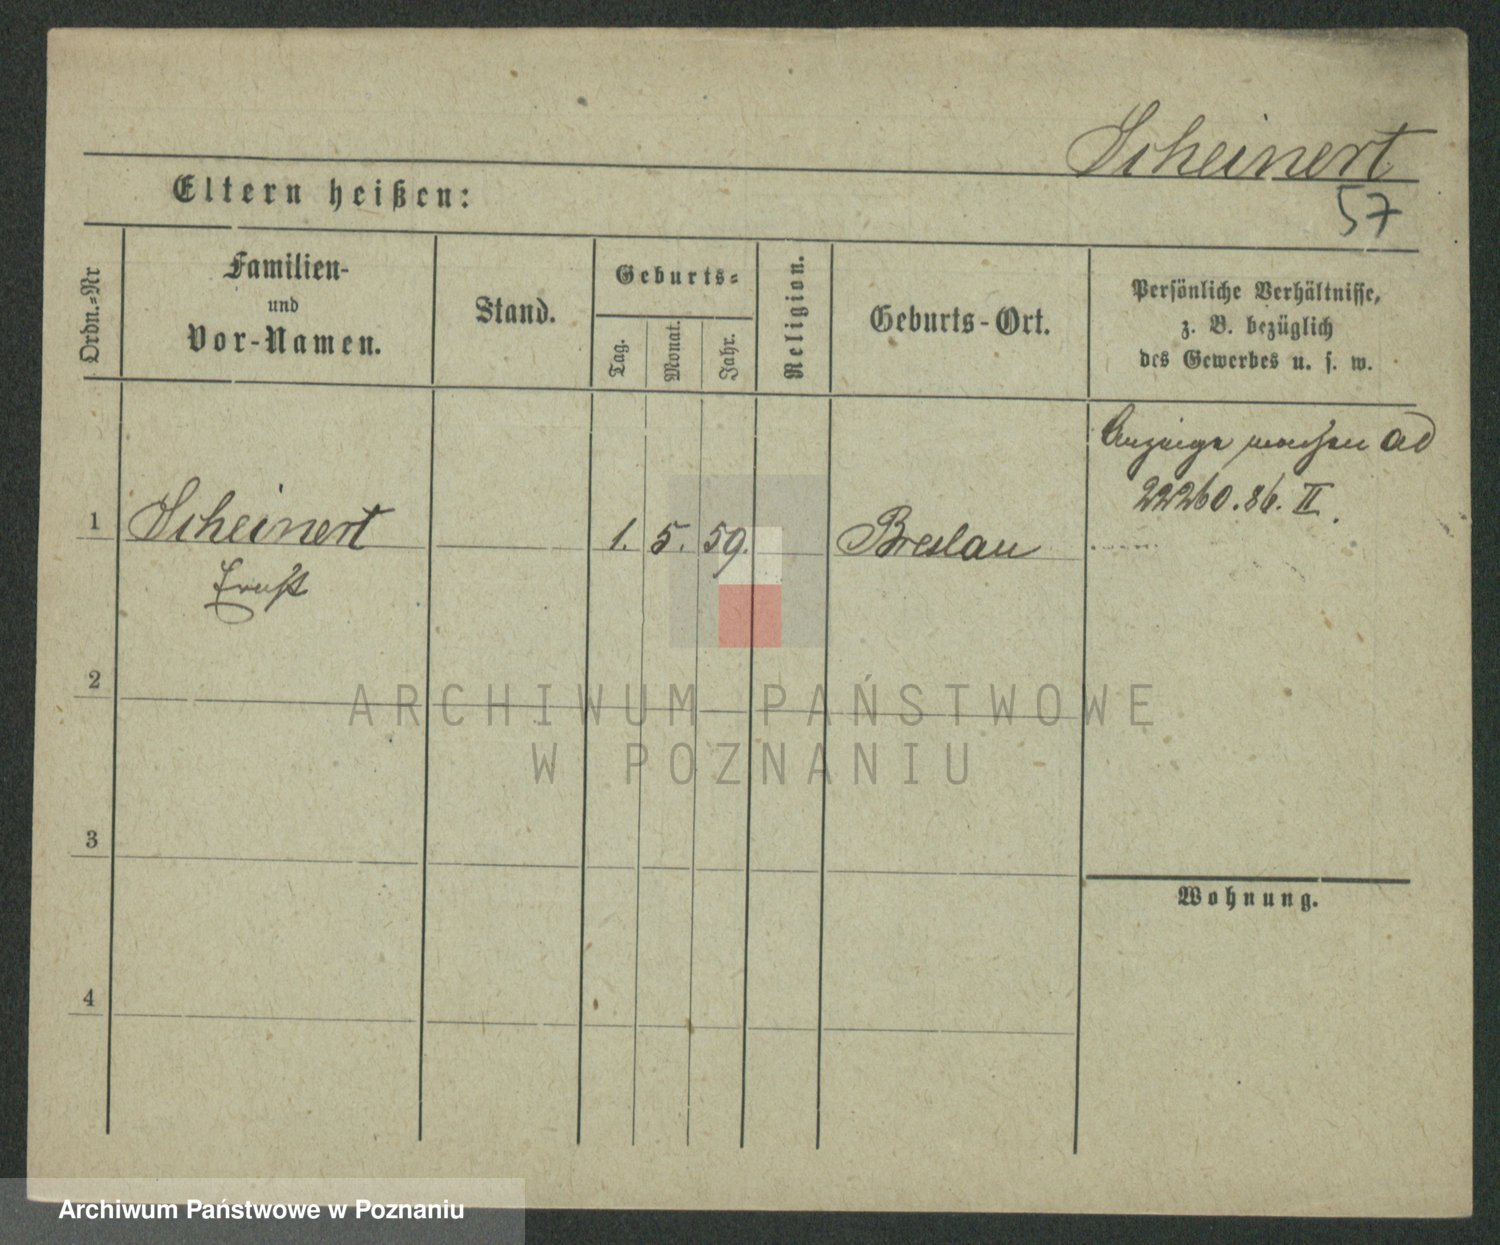 Scheinert
57
Eltern heißen:
Ordn.=Nr
Familien-
und
Vor-Namen.
Stand.
Geburts=
Tag.
Monat.
Jahr.
Religion.
Geburts-Ort.
Persönliche Verhältnisse,
z. B. bezüglich
des Gewerbes u. s. w.
Anzeige machen ad
22260.86. II.
1 Scheinert 1. 5. 59. Breslau
Ernst
2
3
4
Wohnung.
ARCHIWUM PAŃSTWOWE
W POZNANIU
Archiwum Państwowe w Poznaniu